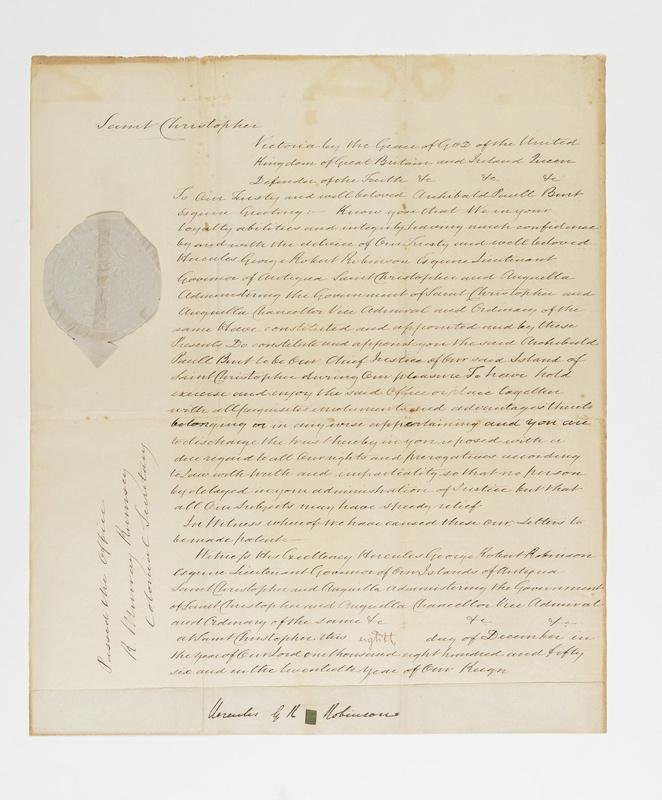 Saint Christopher
Victoria by the Grace of God of the United
Kingdom of Great Britain and Ireland Queen
Defender of the Faith &c &c &c
To Our Trusty and well beloved Archibald Paull Burt
Esquire Greeting :- Know you that We in your
loyalty abilities and integrity having much confidence
by and with the advice of Our Trusty and well beloved
Hercules George Robert Robinson Esquire Lieutenant
Governor of Antigua Saint Christopher and Anguilla
Administering the Government of Saint Christopher and
Anguilla Chancellor Vice Admiral and Ordinary of the
same Have constituted and appointed and by these
Presents Do constitute and appoint you the said Archibald
Paull Burt to be Our Chief Justice of Our said Island of
Saint Christopher during Our pleasure To have hold
exercise and enjoy the said Office or place together
with all perquisites emoluments and advantages thereto
belonging or in any wise appertaining and you are
to discharge the trust hereby in you reposed with a
due regard to all Our rights and prerogatives according
to Law with truth and impartiality so that no person
be delayed in your administration of Justice but that
all Our Subjects may have speedy relief
In Witness whereof We have caused these Our Letters to
be made patent
Witness His Excellency Hercules George Robert Robinson
Esquire Lieutenant Governor of Our Islands of Antigua
Saint Christopher and Anguilla Administering the Government
of Saint Christopher and Anguilla Chancellor Vice Admiral
and Ordinary of the same &c &c &c
at Saint Christopher this eighth day of December in
the Year of Our Lord one thousand eight hundred and fifty
six and in the twentieth Year of Our Reign
Hercules G R Robinson
Passed the Office
R Murray Rumsey
Colonial Secretary